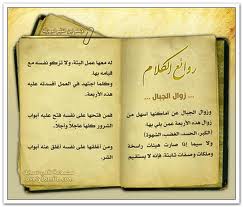 روائع الكلام
... زوال الجبال ...
وزوال الجبال عن أماكنها أسهل من
زوال هذه الأربعة عمن بلي بها،
(الكبر، الحسد، الغضب، الشهوة)
ولا سيما إذا صارت هيئات راسخة
وملكات وصفات ثابتة، فإنه لا يستقيم
له معها عمل البتة، ولا تزكو نفسه مع
قيامه بها.
وكلما اجتهد، في العمل أفسدته عليه
هذه الأربعة.
فمن فتحها على نفسه فتح عليه أبواب
الشرور كلها عاجلاً وآجلاً.
ومن أغلقها على نفسه أغلق عليه أبواب